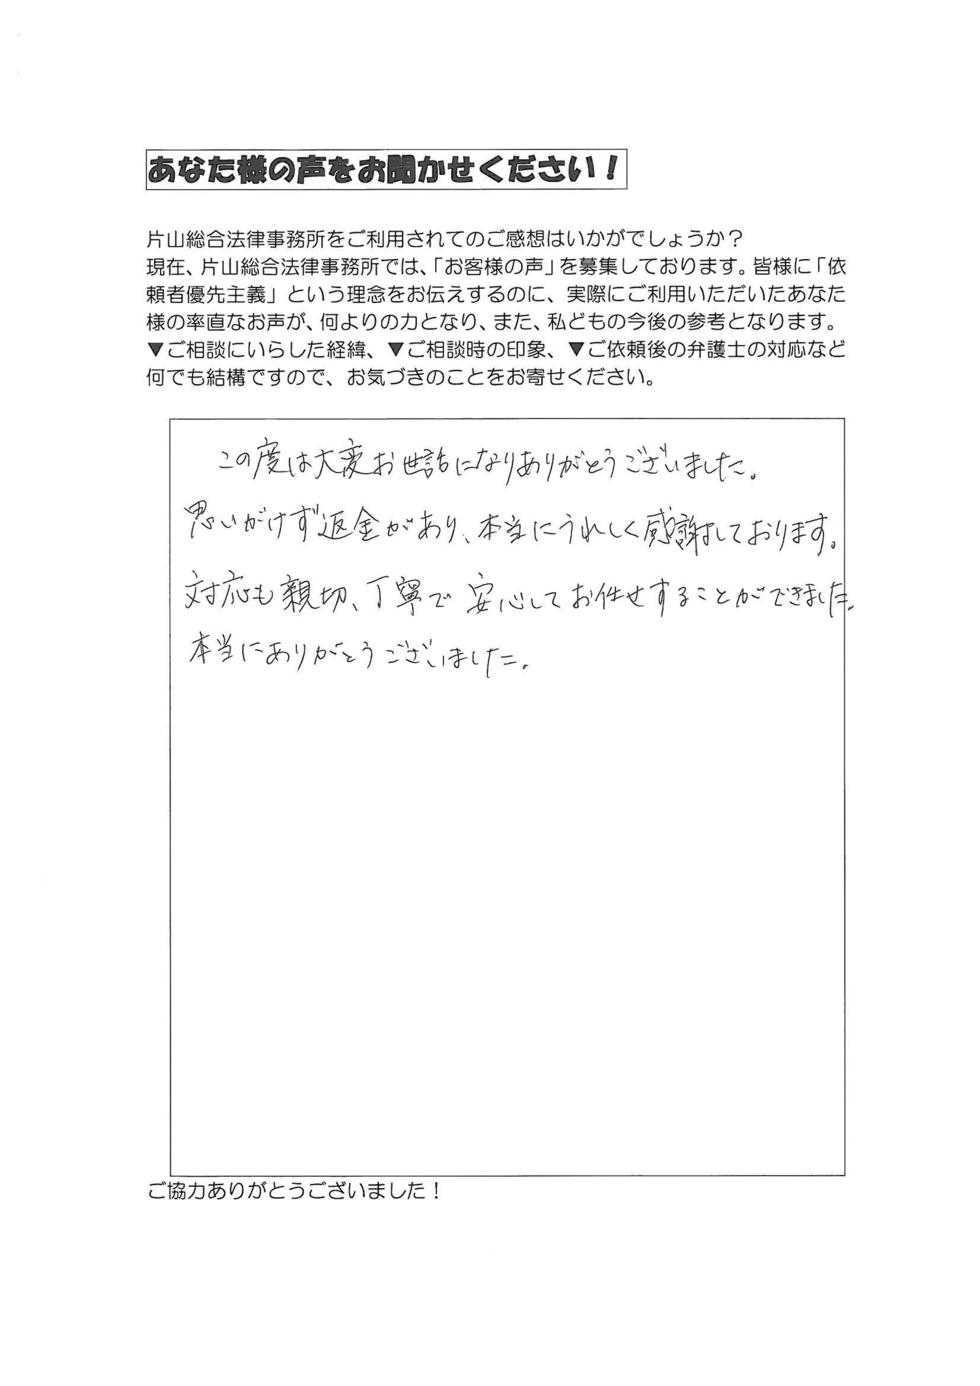 あなた様の声をお聞かせください！
片山総合法律事務所をご利用されてのご感想はいかがでしょうか？
現在、片山総合法律事務所では、「お客様の声」を募集しております。皆様に「依
頼者優先主義」という理念をお伝えするのに、実際にご利用いただいたあなた
様の率直なお声が、何よりの力となり、また、私どもの今後の参考となります。
▼ご相談にいらした経緯、▼ご相談時の印象、▼ご依頼後の弁護士の対応など
何でも結構ですので、お気づきのことをお寄せください。
この度は大変お世話になりありがとうございました。
思いがけず返金があり、本当にうれしく感謝しております。
対応も親切、丁寧で安心してお任せすることができました。
本当にありがとうございました。
ご協力ありがとうございました！